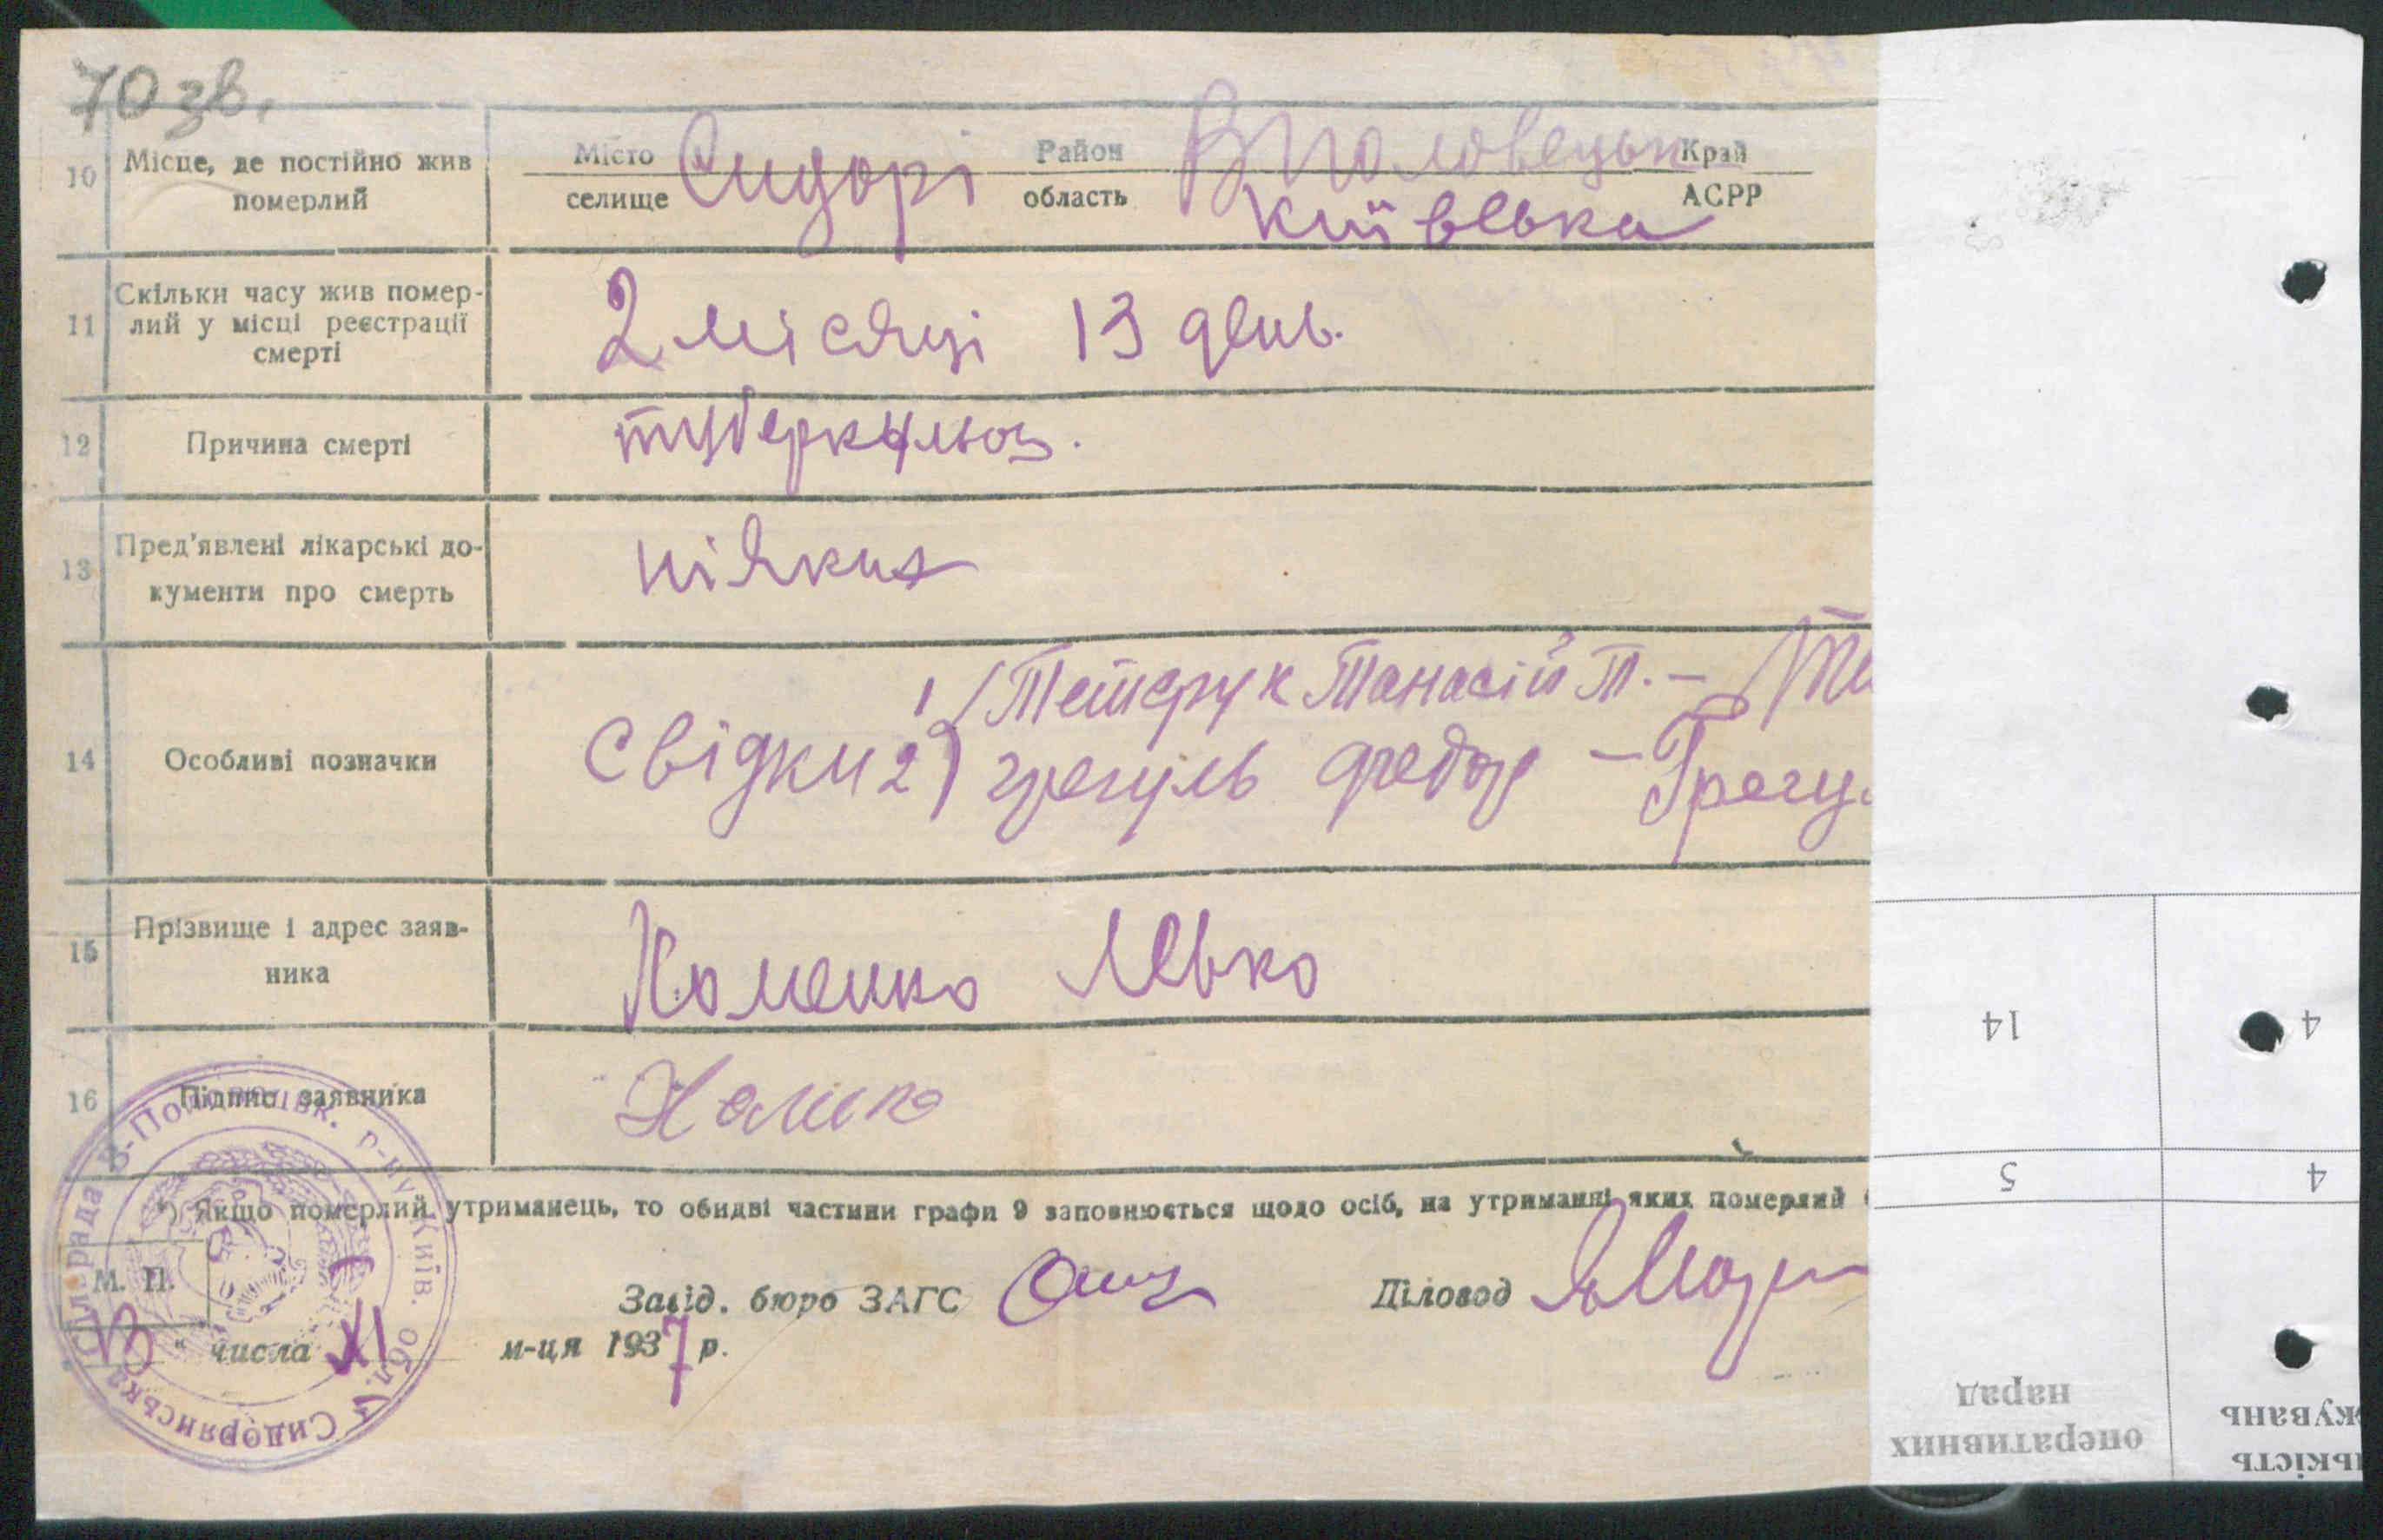 70 зв.
10 Місце, де постійно жив померлий
Місто селище Сидорі Район область В Половецьк Край АСРР
Київська
11 Скільки часу жив помер-
лий у місці реєстрації
смерті
2 місяці 13 день.
12 Причина смерті туберкульоз.
13 Пред'явлені лікарські до-
кументи про смерть
ніяких
14 Особливі позначки
1/ Тетерук Танасій Т. –
Свідки 2) грегуль федор – Грегу
15 Прізвище і адрес заяв-
ника
Хоменко Левко
16 Підпис заявника
*) Якщо померлий утриманець, то обидві частини графи 9 заповнюється щодо осіб, на утриманні яких померлий
М. П.
Завід. бюро ЗАГС
Діловод
13 " числа XI м-ця 1937 р.
Сидорянська Сільрада В-Половецьк. р-ну Київ. обл.
14
4
5
4
оперативних
нарад
ькість
кувань